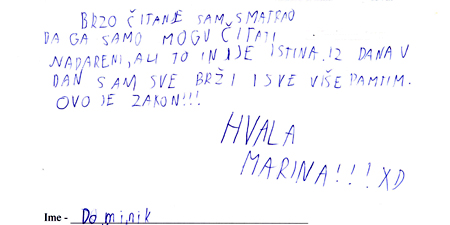 BRZO ČITANJE SAM SMATRAO
DA GA SAMO MOGU ČITATI
NADARENI, ALI TO NIJE ISTINA. IZ DANA U
DAN SAM SVE BRŽI I SVE VIŠE PAMTIM.
OVO JE ZAKON!!!
HVALA
MARINA!!! XD
Ime - Dominik